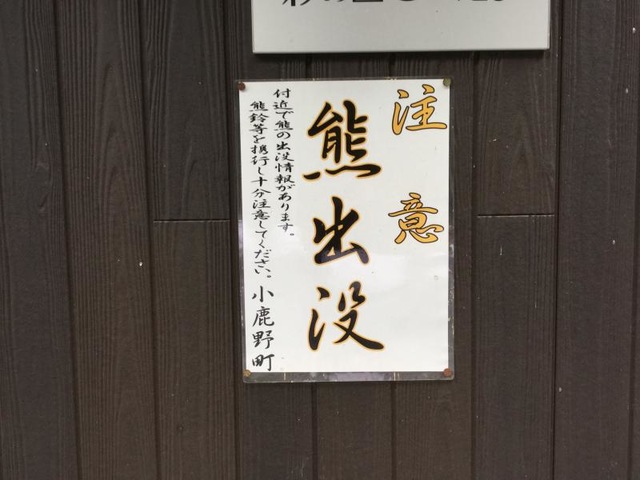 注意
熊出没
付近で熊の出没情報があります。
熊鈴等を携行し十分注意してください。
小鹿野町